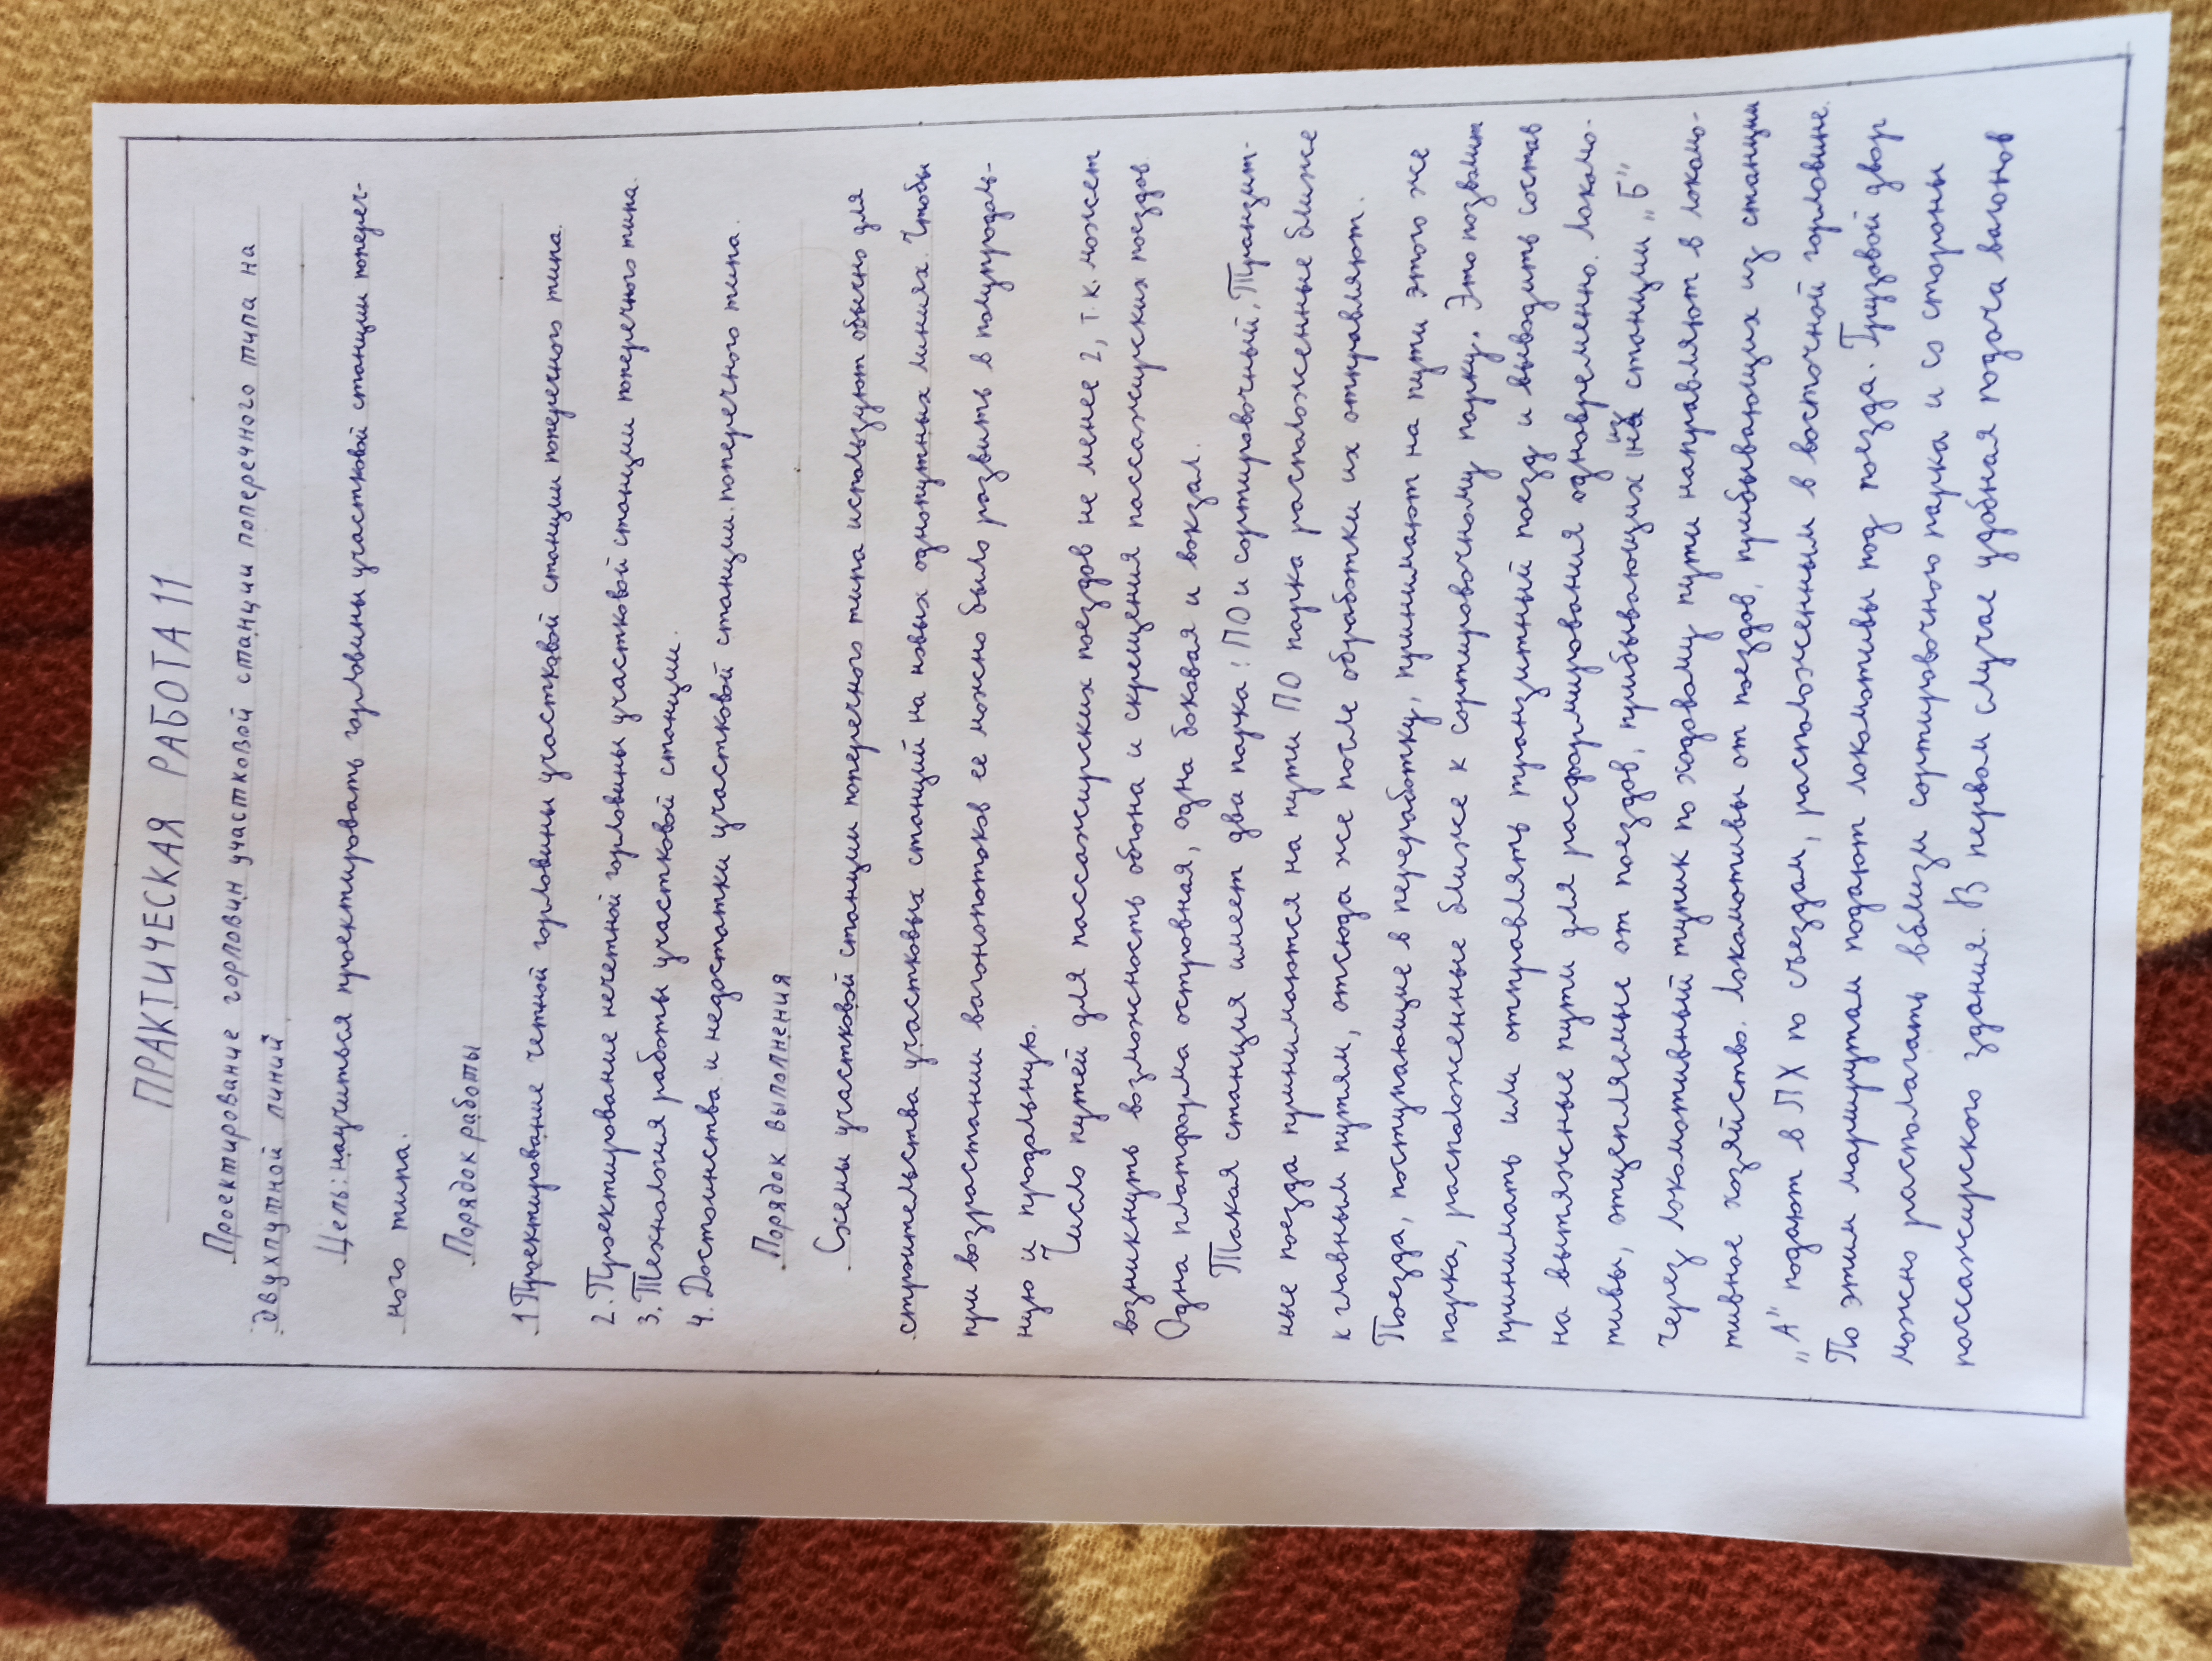 ПРАКТИЧЕСКАЯ РАБОТА 11
Проектирование горловин участковой станции поперечного типа на
двухпутной линий
Цель: научиться проектировать горловины участковой станции попереч-
ного типа.
Порядок работы
1 Проектирование четной горловины участковой станции поперечного типа.
2. Проектирование нечетной горловины участковой станции поперечного типа.
3. Технология работы участковой станции.
4. Достоинства и недостатки участковой станции поперечного типа.
Порядок выполнения
Схемы участковой станции поперечного типа используют обычно для
строительства участковых станций на новых однопутных линиях. Чтобы
при возрастании вагонопотоков ее можно было развить в полупродоль-
ную и продольную.
Число путей для пассажирских поездов не менее 2, т.к. может
возникнуть возможность обгона и скрещения пассажирских поездов.
Одна платформа островная, одна боковая и вокзал.
Такая станция имеет два парка: ПО и сортировочный. Транзит-
ные поезда принимаются на пути ПО парка расположенные ближе
к главным путям, отсюда же после обработки их отправляют.
Поезда, поступающие в переработку, принимают на пути этого же
парка, расположенные ближе к сортировочному парку. Это позволит
принимать или отправлять транзитный поезд и выводить состав
на вытяжные пути для расформирования одновременно. Локомо-
тивы, отцепляемые от поездов, прибывающих из станции „Б"
через локомотивный тупик по ходовому пути направляют в локомо-
тивное хозяйство. Локомотивы от поездов, прибывающих из станции
„А" подают в ЛХ по съездам, расположенным в восточной горловине.
По этим маршрутам подают локомотивы под поезда. Грузовой двор
можно располагать вблизи сортировочного парка и со стороны
пассажирского здания. В первом случае удобная подача вагонов